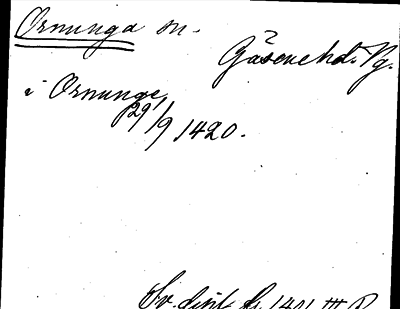 Ornunga sn.
Gäsene hd. Vg.
i Ornunge
29/9 1420.
Sv. dipl. fr. 1401 III